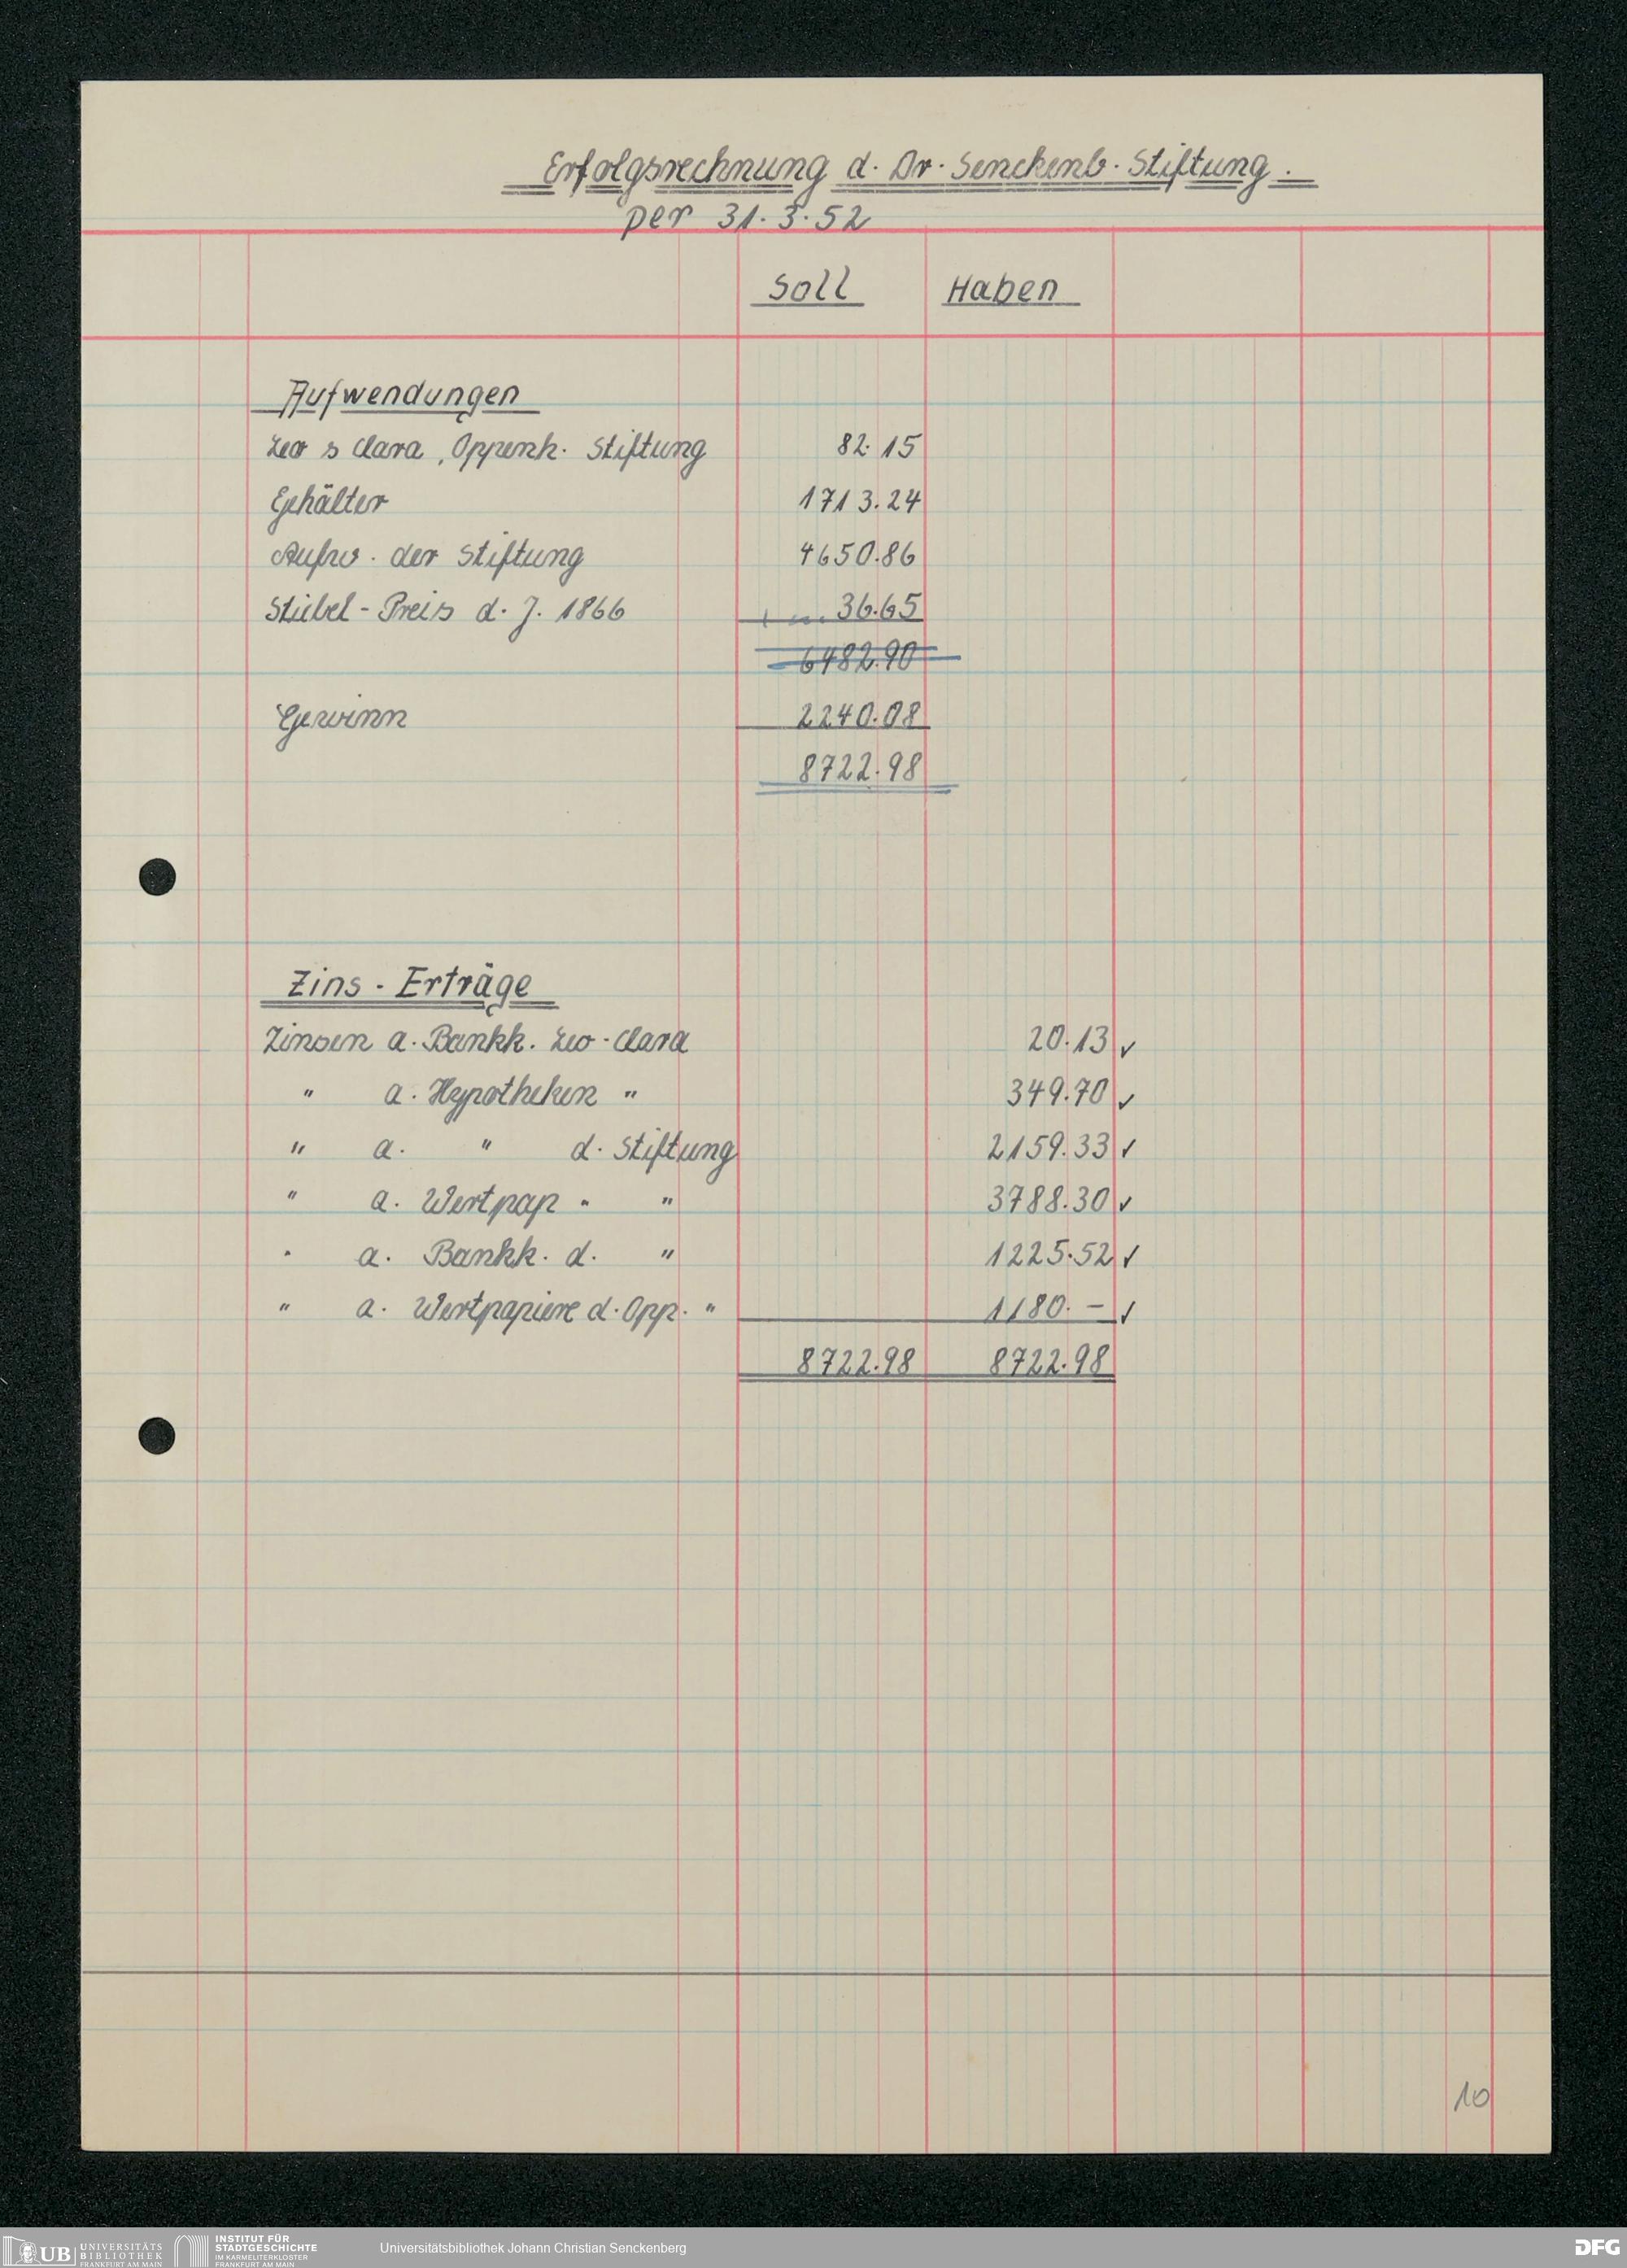 Erfolgsrechnung d. Dr. Senckenb. Stiftung.
per 31.3.52
Soll Haben
Aufwendungen
Leo s Clara, Oppenh. Stiftung 82.15
Gehälter 1713.24
Aufw. der Stiftung 4650.86
Stiebel-Preis d. J. 1866 36.65
6482.90
Gewinn 2240.08
8722.98
Zins-Erträge
Zinsen a. Bankk. Leo-Clara 20.13 ✓
" a. Hypotheken " 349.70 ✓
" a. " d. Stiftung 2159.33 ✓
" a. Wertpap " " 3788.30 ✓
" a. Bankk. d. " 1225.52 ✓
" a. Wertpapiere d. Opp. " 1180.- ✓
8722.98 8722.98
10
UB UNIVERSITÄTS BIBLIOTHEK FRANKFURT AM MAIN
INSTITUT FÜR STADTGESCHICHTE IM KARMELITERKLOSTER FRANKFURT AM MAIN
Universitätsbibliothek Johann Christian Senckenberg
DFG